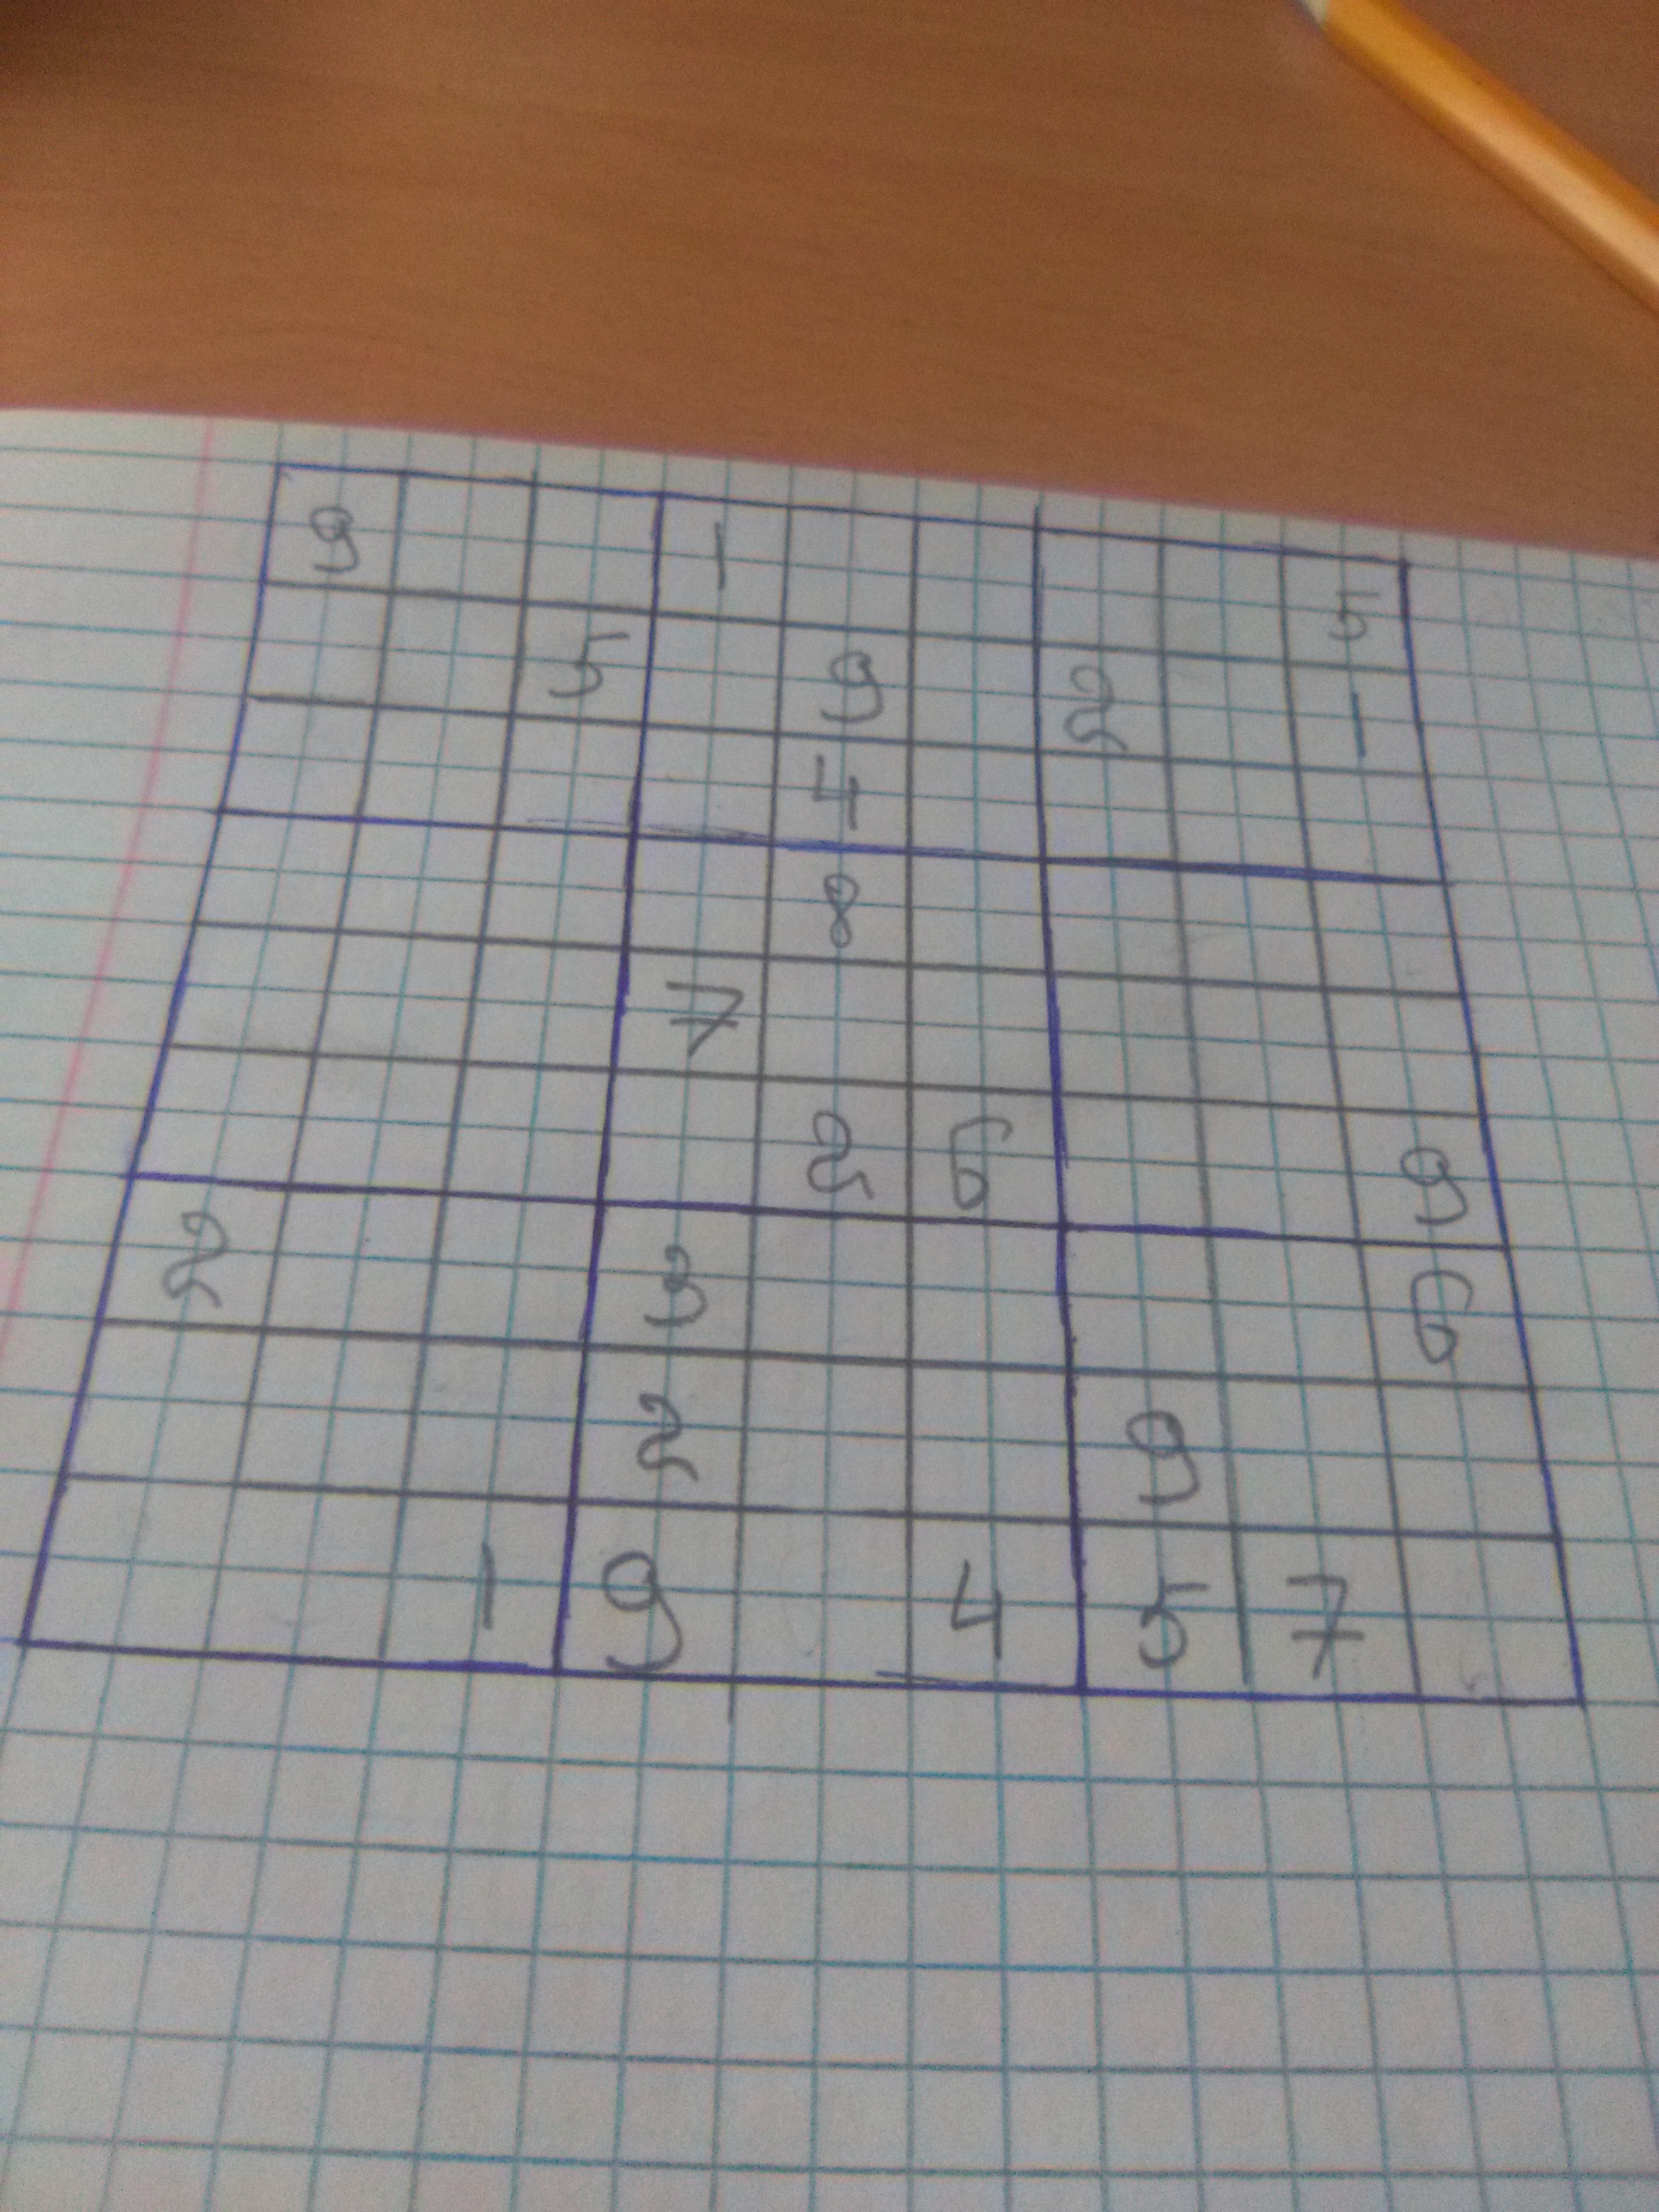 9 1 5
5 9 2 1
4
8
7
2 6 9
2 3 6
2 9
1 9 4 5 7